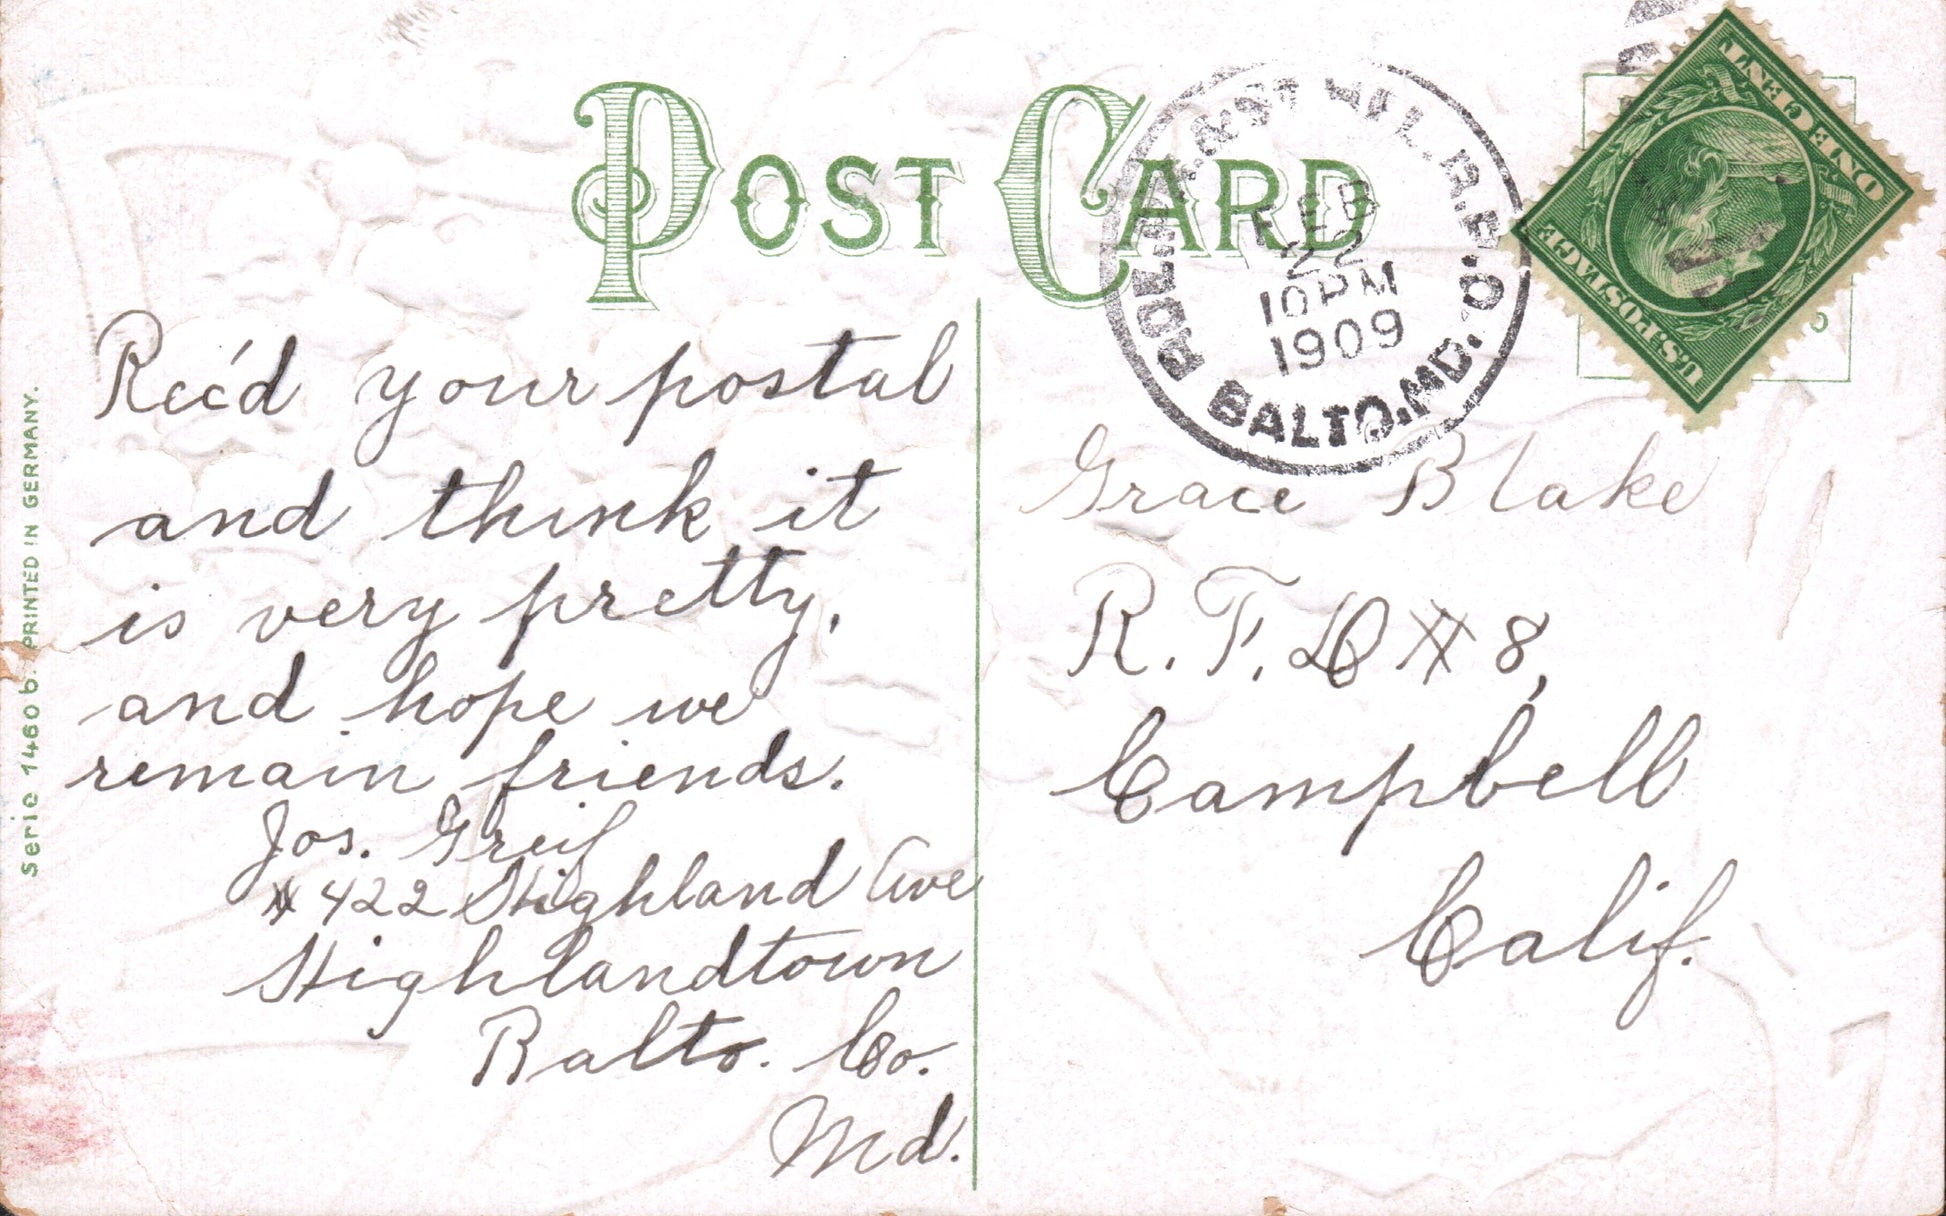 POST CARD
Rec'd your postal
and think it
is very pretty,
and hope we
remain friends.
Jos. Greif
# 422 Highland Ave
Highlandtown
Balto. Co.
Md.
Serie 1460 b. PRINTED IN GERMANY.
R.P.O.
FEB
22
10 PM
1909
BALTO. MD.
U.S. POSTAGE
ONE CENT
Grace Blake
R. F. D # 8,
Campbell
Calif.